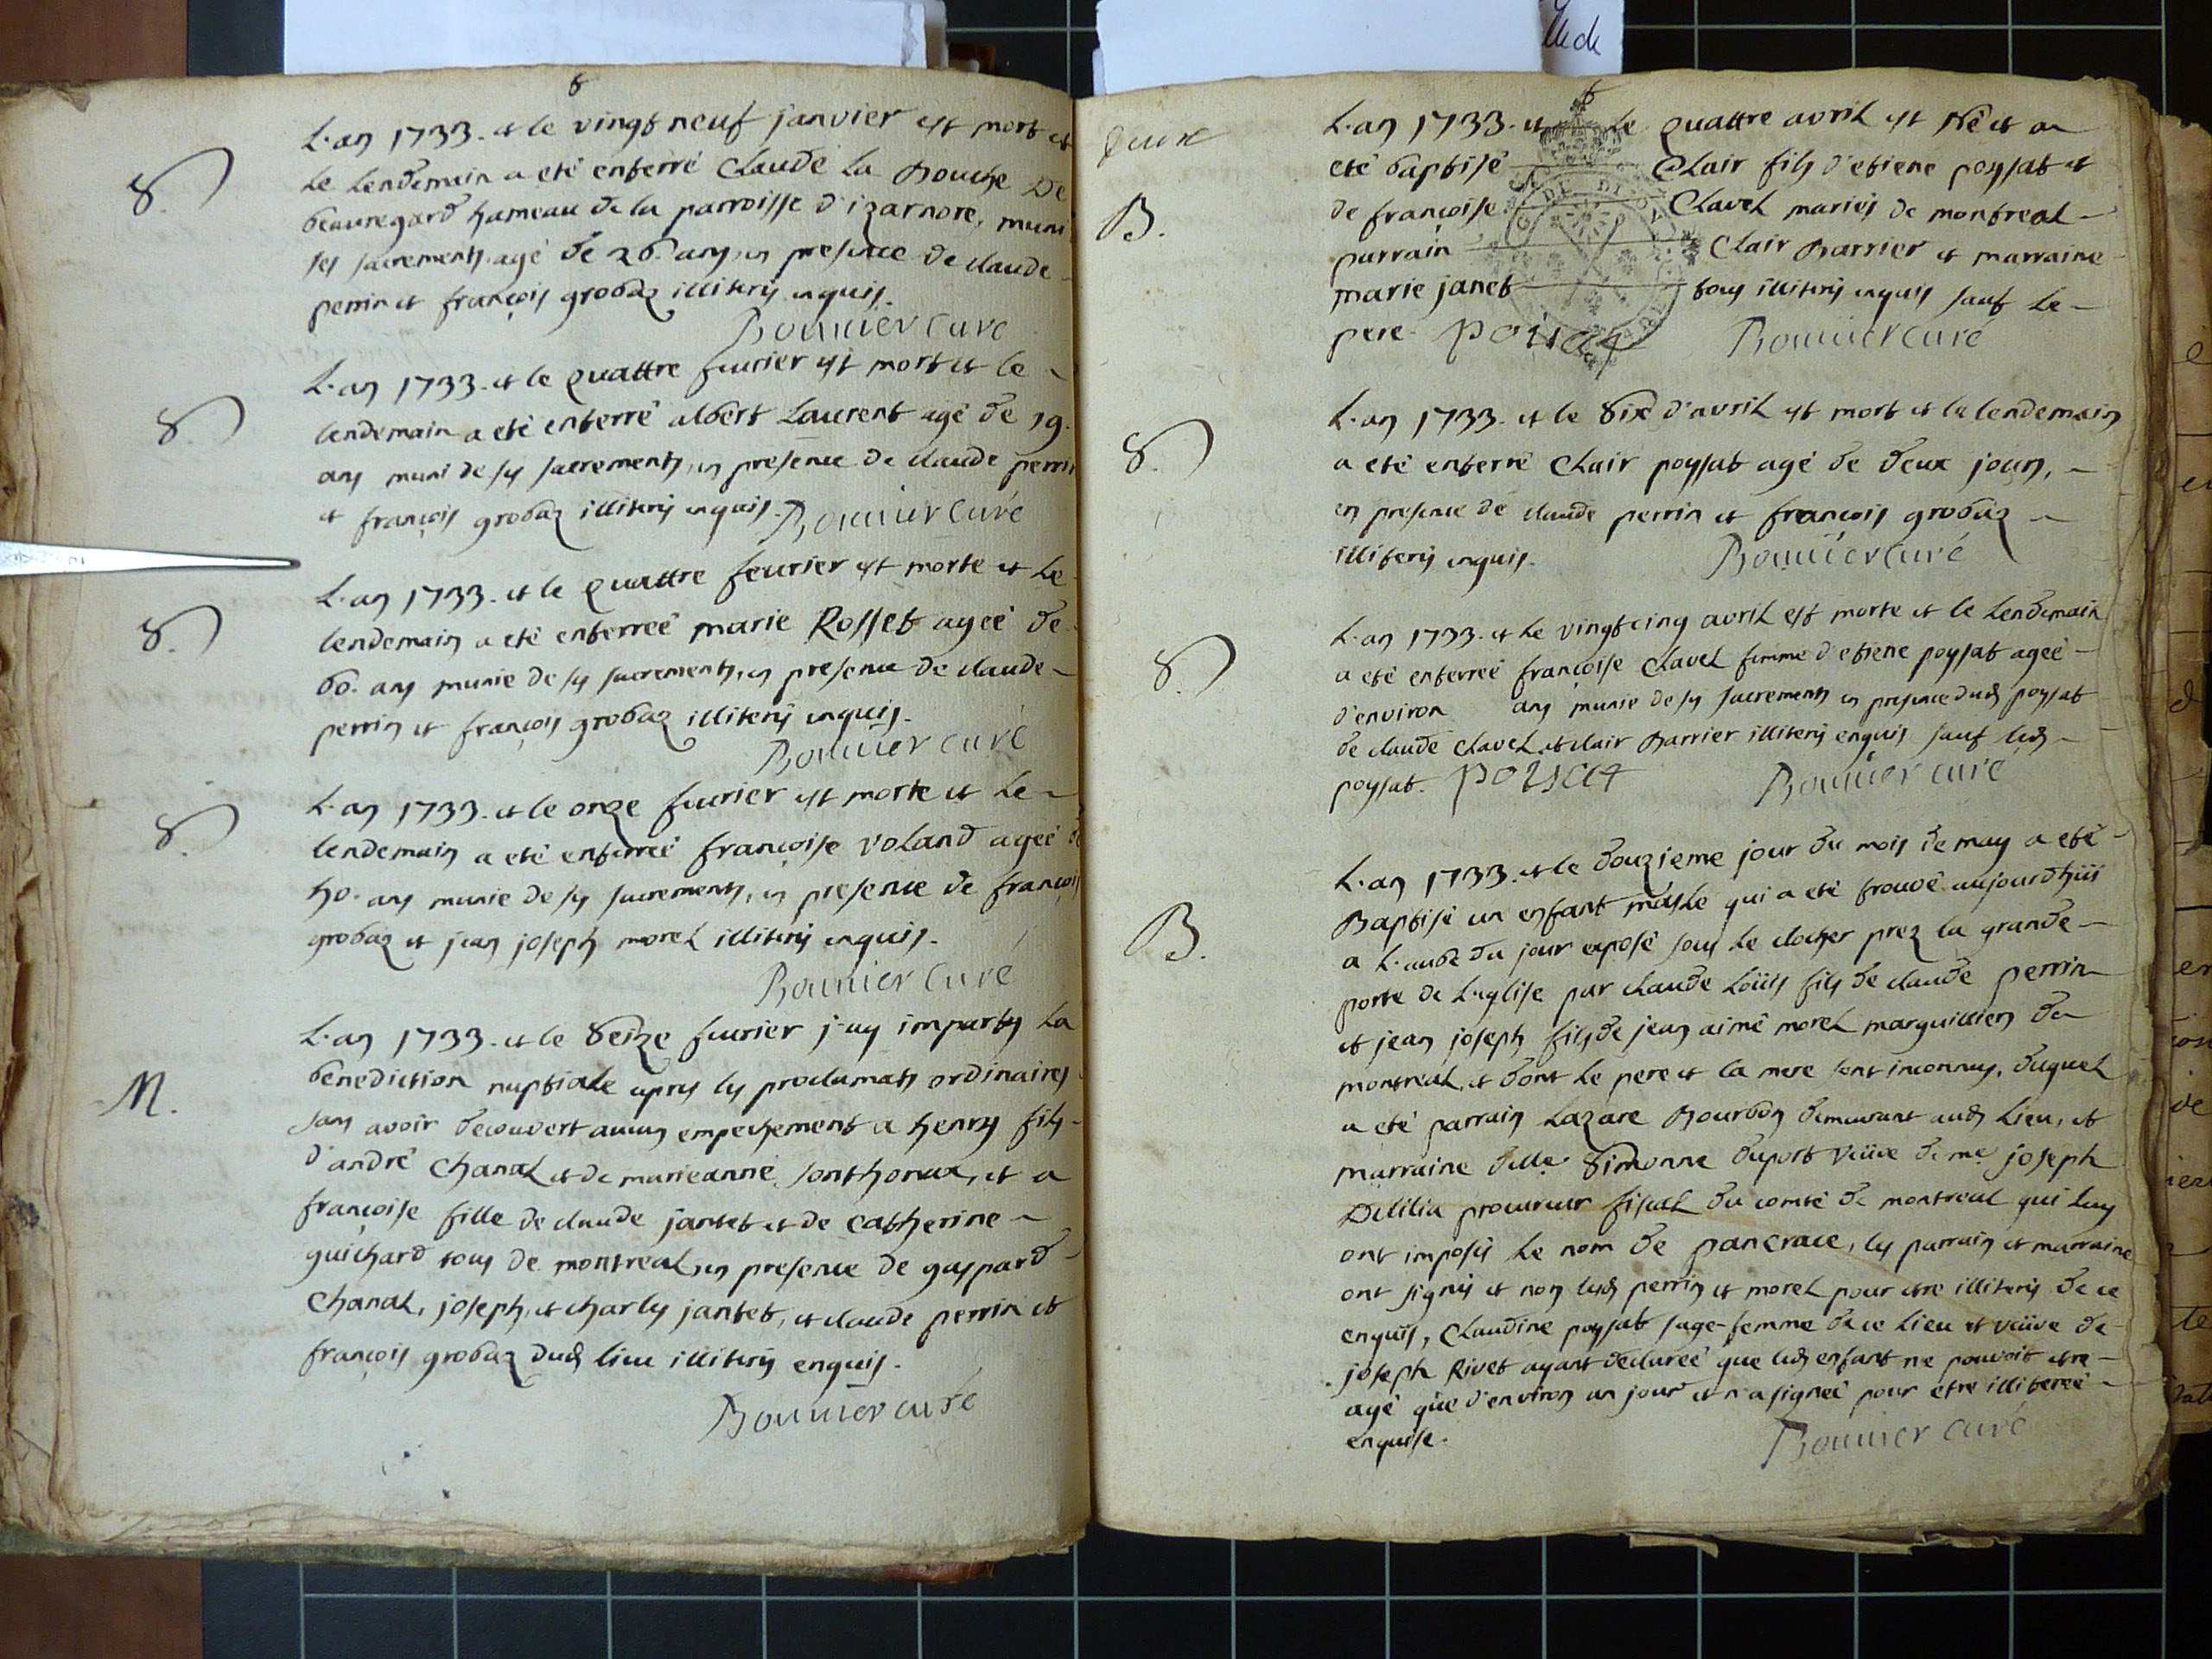 L'an 1733. et le vingt neuf janvier est mort et
le lendemain a eté enterré Claude La Bouche De
beauregard hameau de la parroisse d'izarnore, muni
ses sacrements agé de 26. ans, en presence de claude
perrin et françois grobaz illiterés enquis.
Bonnier curé
D.
L'an 1733. et le quattre feurier est mort et le
lendemain a eté enterré albert Laurent agé de 19.
ans muni de ses sacrements, en presence de claude perrin
et françois grobaz illiterés enquis. Bonnier Curé
D.
L'an 1733. et le quattre feurier est morte et le
lendemain a eté enterreé marie Rosset ageé de
60. ans munie de ses sacrements, en presence de claude
perrin et françois grobaz illiterés enquis.
Bonnier curé
D.
L'an 1733. et le onze feurier est morte et le
lendemain a eté enterreé françoise voland ageé de
ans munie de ses sacrements, en presence de françois
grobaz et jean joseph morel illiterés enquis.
Bonnier curé
D.
L'an 1733. et le seize feurier j'ay imparty la
benediction nuptiale apres les proclamats ordinaires
sans avoir decouvert aucun empechement a henry fils
M.
d'andré Chanal et de marieanne sonthonax, et a
françoise fille de claude jantet et de catherine
guichard tous de montreal, en presence de gaspard
Chanal, joseph, et charles jantet, et claude perrin et
françois grobaz dud. lieu illiterés enquis.
Bonnier curé
deux
L'an 1733. et le quattre avril est Né et a
eté baptisé Clair fils d'etiene poysat et
B.
de françoise Clavel mariés de montreal
parrain Clair Barrier et marraine
marie janet tous illiterés enquis sauf le
pere poisat Bonnier curé
L'an 1733. et le six d'avril est mort et le lendemain
D.
a eté enterré Clair poysat agé de deux jours,
en presence de claude perrin et françois grobaz
illiterés enquis. Bonnier curé
L'an 1733. et le vingt cinq avril est morte et le lendemain
D.
a eté enterreé françoise Clavel femme d'etiene poysat ageé
d'environ ans munie de ses sacrements en presence dud. poysat
de claude Clavel et clair Barrier illiterés enquis sauf led.
poysat. poisat Bonnier curé
L'an 1733. et le douzieme jour du mois de may a eté
Baptisé un enfant masle qui a eté trouvé aujourdhüi
B.
a L'aube du jour exposé sous le clocher prez la grande
porte de L'eglise par claude Loüis fils de claude perrin
et jean joseph fils de jean aimé morel marguilliers de
montreal, et dont le pere et la mere sont inconnus, duquel
a eté parrain Lazare Bourdon demeurant aud. Lieu, et
marraine delle. Simonne duport veüve de me. joseph
Delilia procureur fiscal du comté de montreal qui luy
ont imposé le nom de pancrace, les parrain et marraine
ont signés et non lesd. perrin et morel pour etre illiterés de ce
enquis, Claudine poysat sage-femme de ce lieu et veüve de
joseph Rivet ayant declareé que led. enfant ne pouvoit etre
agé que d'environ un jour et n'a signeé pour etre illitereé
enquise. Bonnier curé